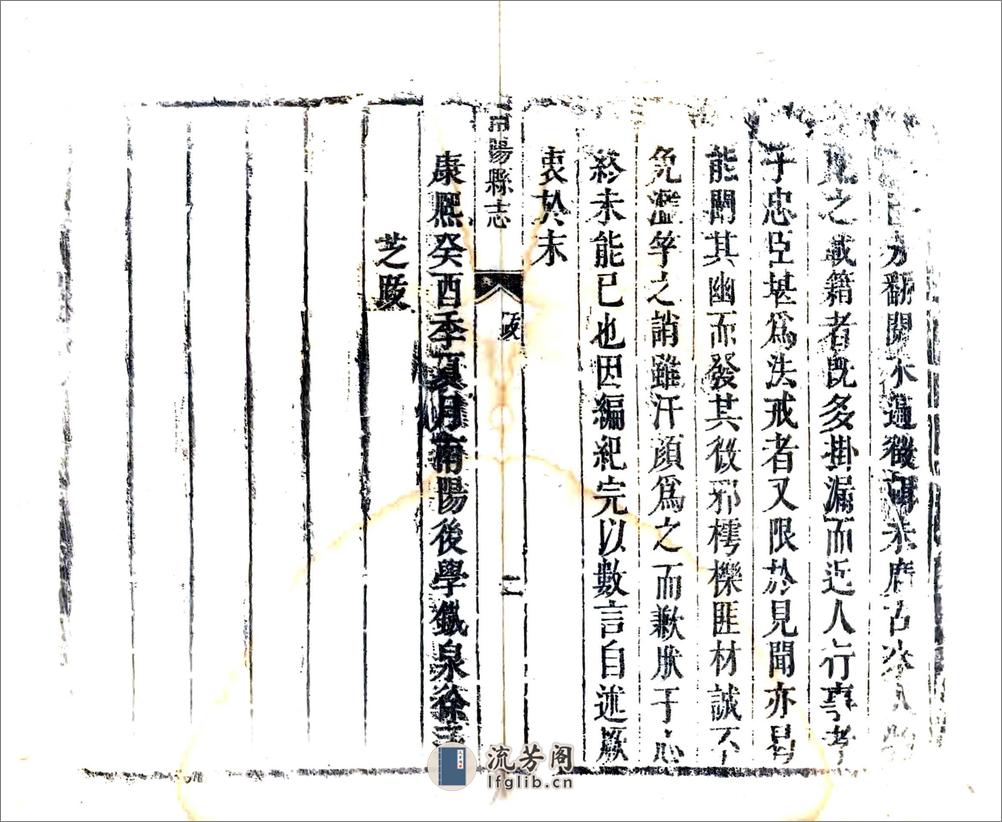 翻閱未遍徵輯未廣古來人物
見之載籍者既多掛漏而近人行事孝
子忠臣堪為法戒者又限於見聞亦曷
能闡其幽而發其微邪樗櫟匪材誠不
免濫竽之誚雖汗顏為之而歉肰于心
終未能已也因編紀完以數言自述厥
衷於末
陽縣志
跋
二
康熙癸酉季夏月南陽後學鐵泉徐
芝跋
流芳阁
lfglib.cn